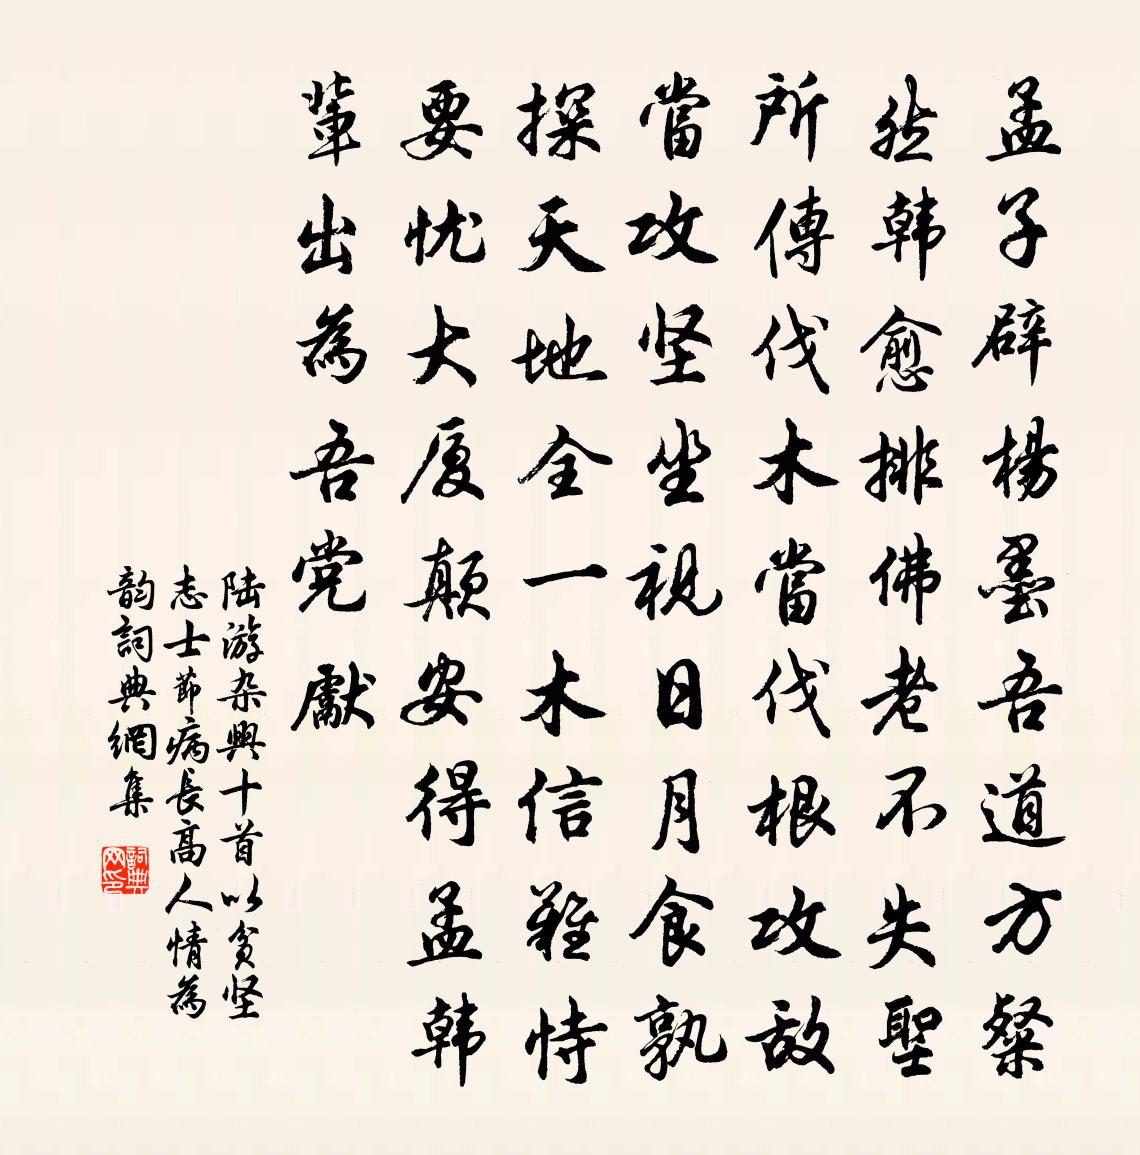 孟子辟楊墨吾道方粲
然韩愈排佛老不失聖
所傳伐木當伐根攻敌
當攻坚坐視日月食孰
探天地全一木信難恃
要忧大厦颠安得孟韩
輩出為吾党獻
陆游杂興十首以貧坚
志士節病長高人情為
韵詞典網集
詞典网印